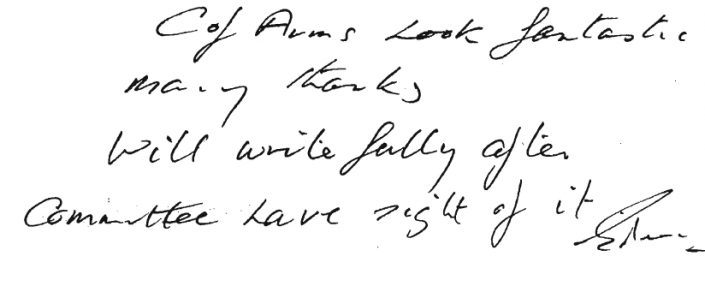 C of Arms look fantastic
many thanks
Will write fully after
Committee have sight of it